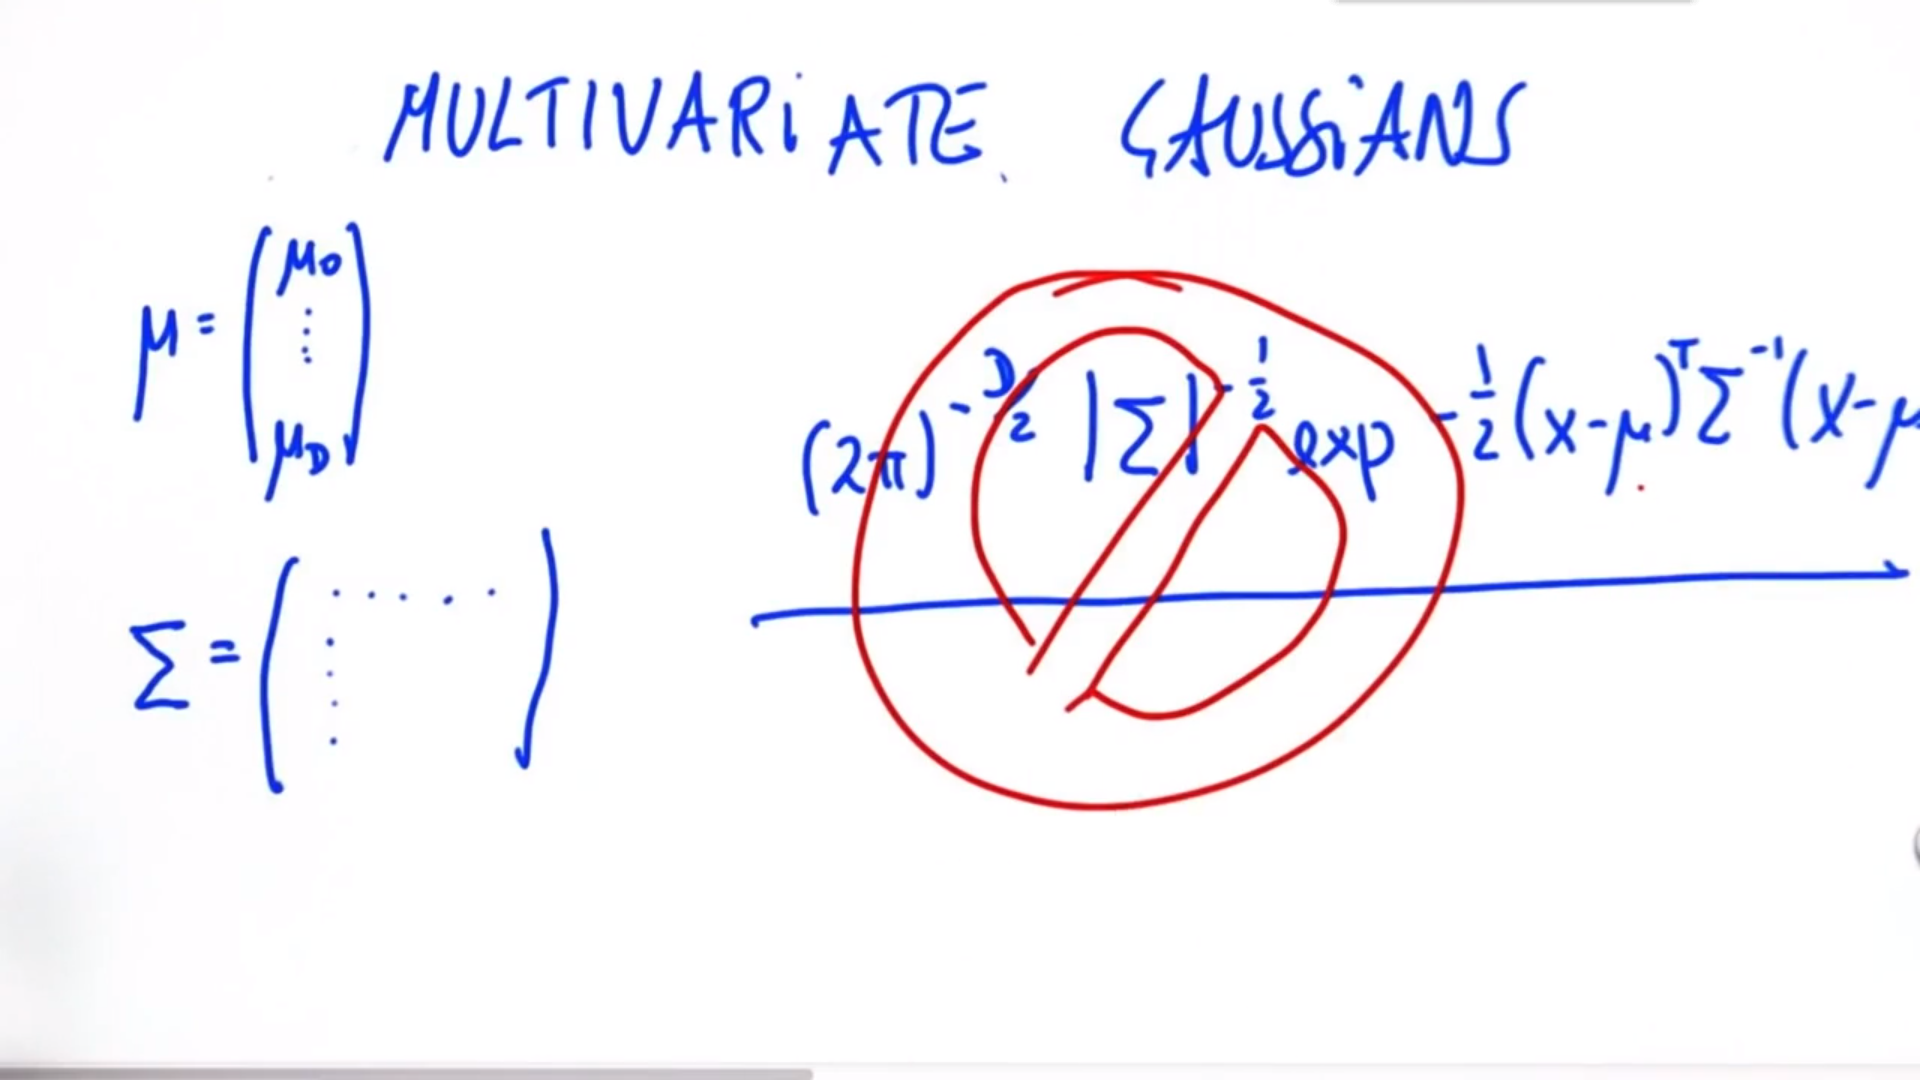 MULTIVARIATE GAUSSIANS
μ = (μ₀ ⋮ μ_D)
(2π)^{-D/2} |Σ|^{-1/2} exp -1/2 (x-μ)^T Σ^{-1} (x-μ
Σ = ( ..... ⋮ )